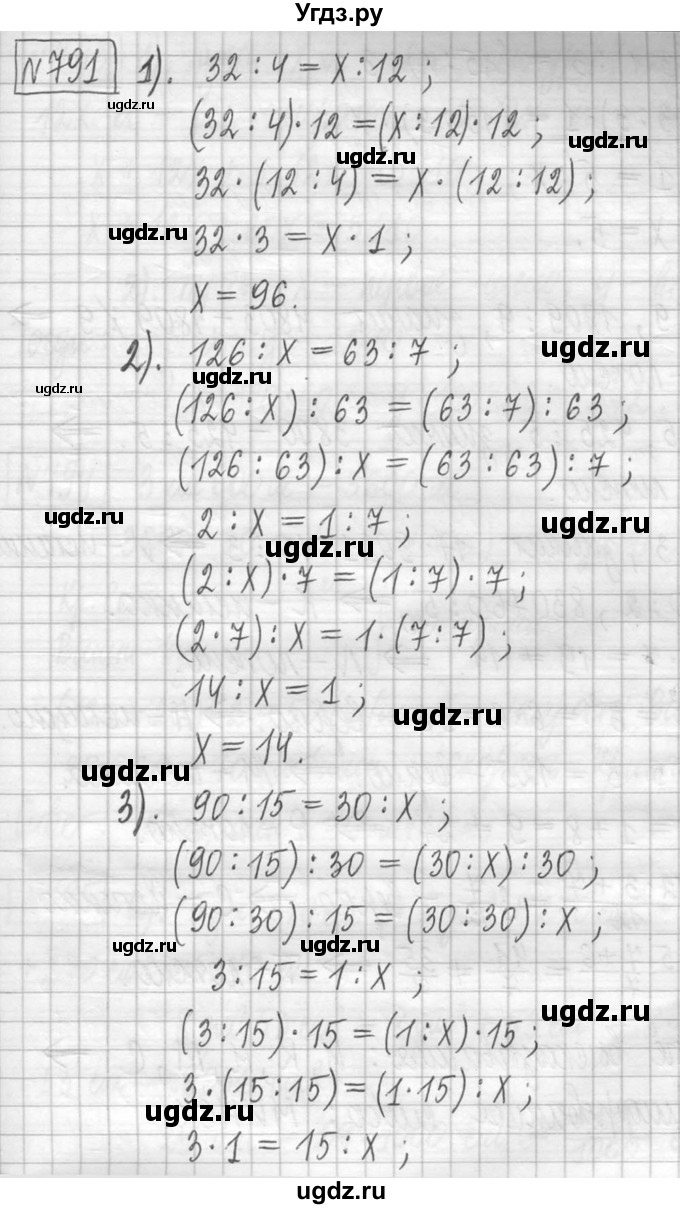 Угдз.ру
№791 1). 32 : 4 = x : 12 ;
ugdz.ru
(32 : 4) · 12 = (x : 12) · 12 ;
ugdz.ru
ugdz.ru
32 · (12 : 4) = x · (12 : 12) ;
ugdz.ru
32 · 3 = x · 1 ;
x = 96.
2). 126 : x = 63 : 7 ;
ugdz.ru
ugdz.ru
ugdz.ru
(126 : x) : 63 = (63 : 7) : 63 ;
(126 : 63) : x = (63 : 63) : 7 ;
ugdz.ru
2 : x = 1 : 7 ;
ugdz.ru
ugdz.ru
(2 : x) · 7 = (1 : 7) · 7 ;
(2 · 7) : x = 1 · (7 : 7) ;
14 : x = 1 ;
ugdz.ru
x = 14.
ugdz.ru
3). 90 : 15 = 30 : x ;
(90 : 15) : 30 = (30 : x) : 30 ;
(90 : 30) : 15 = (30 : 30) : x ;
ugdz.ru
ugdz.ru
3 : 15 = 1 : x ;
ugdz.ru
(3 : 15) · 15 = (1 : x) · 15 ;
3 · (15 : 15) = (1 · 15) : x ;
ugdz.ru
3 · 1 = 15 : x ;
ugdz.ru